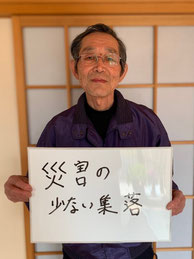 災害の
少ない集落